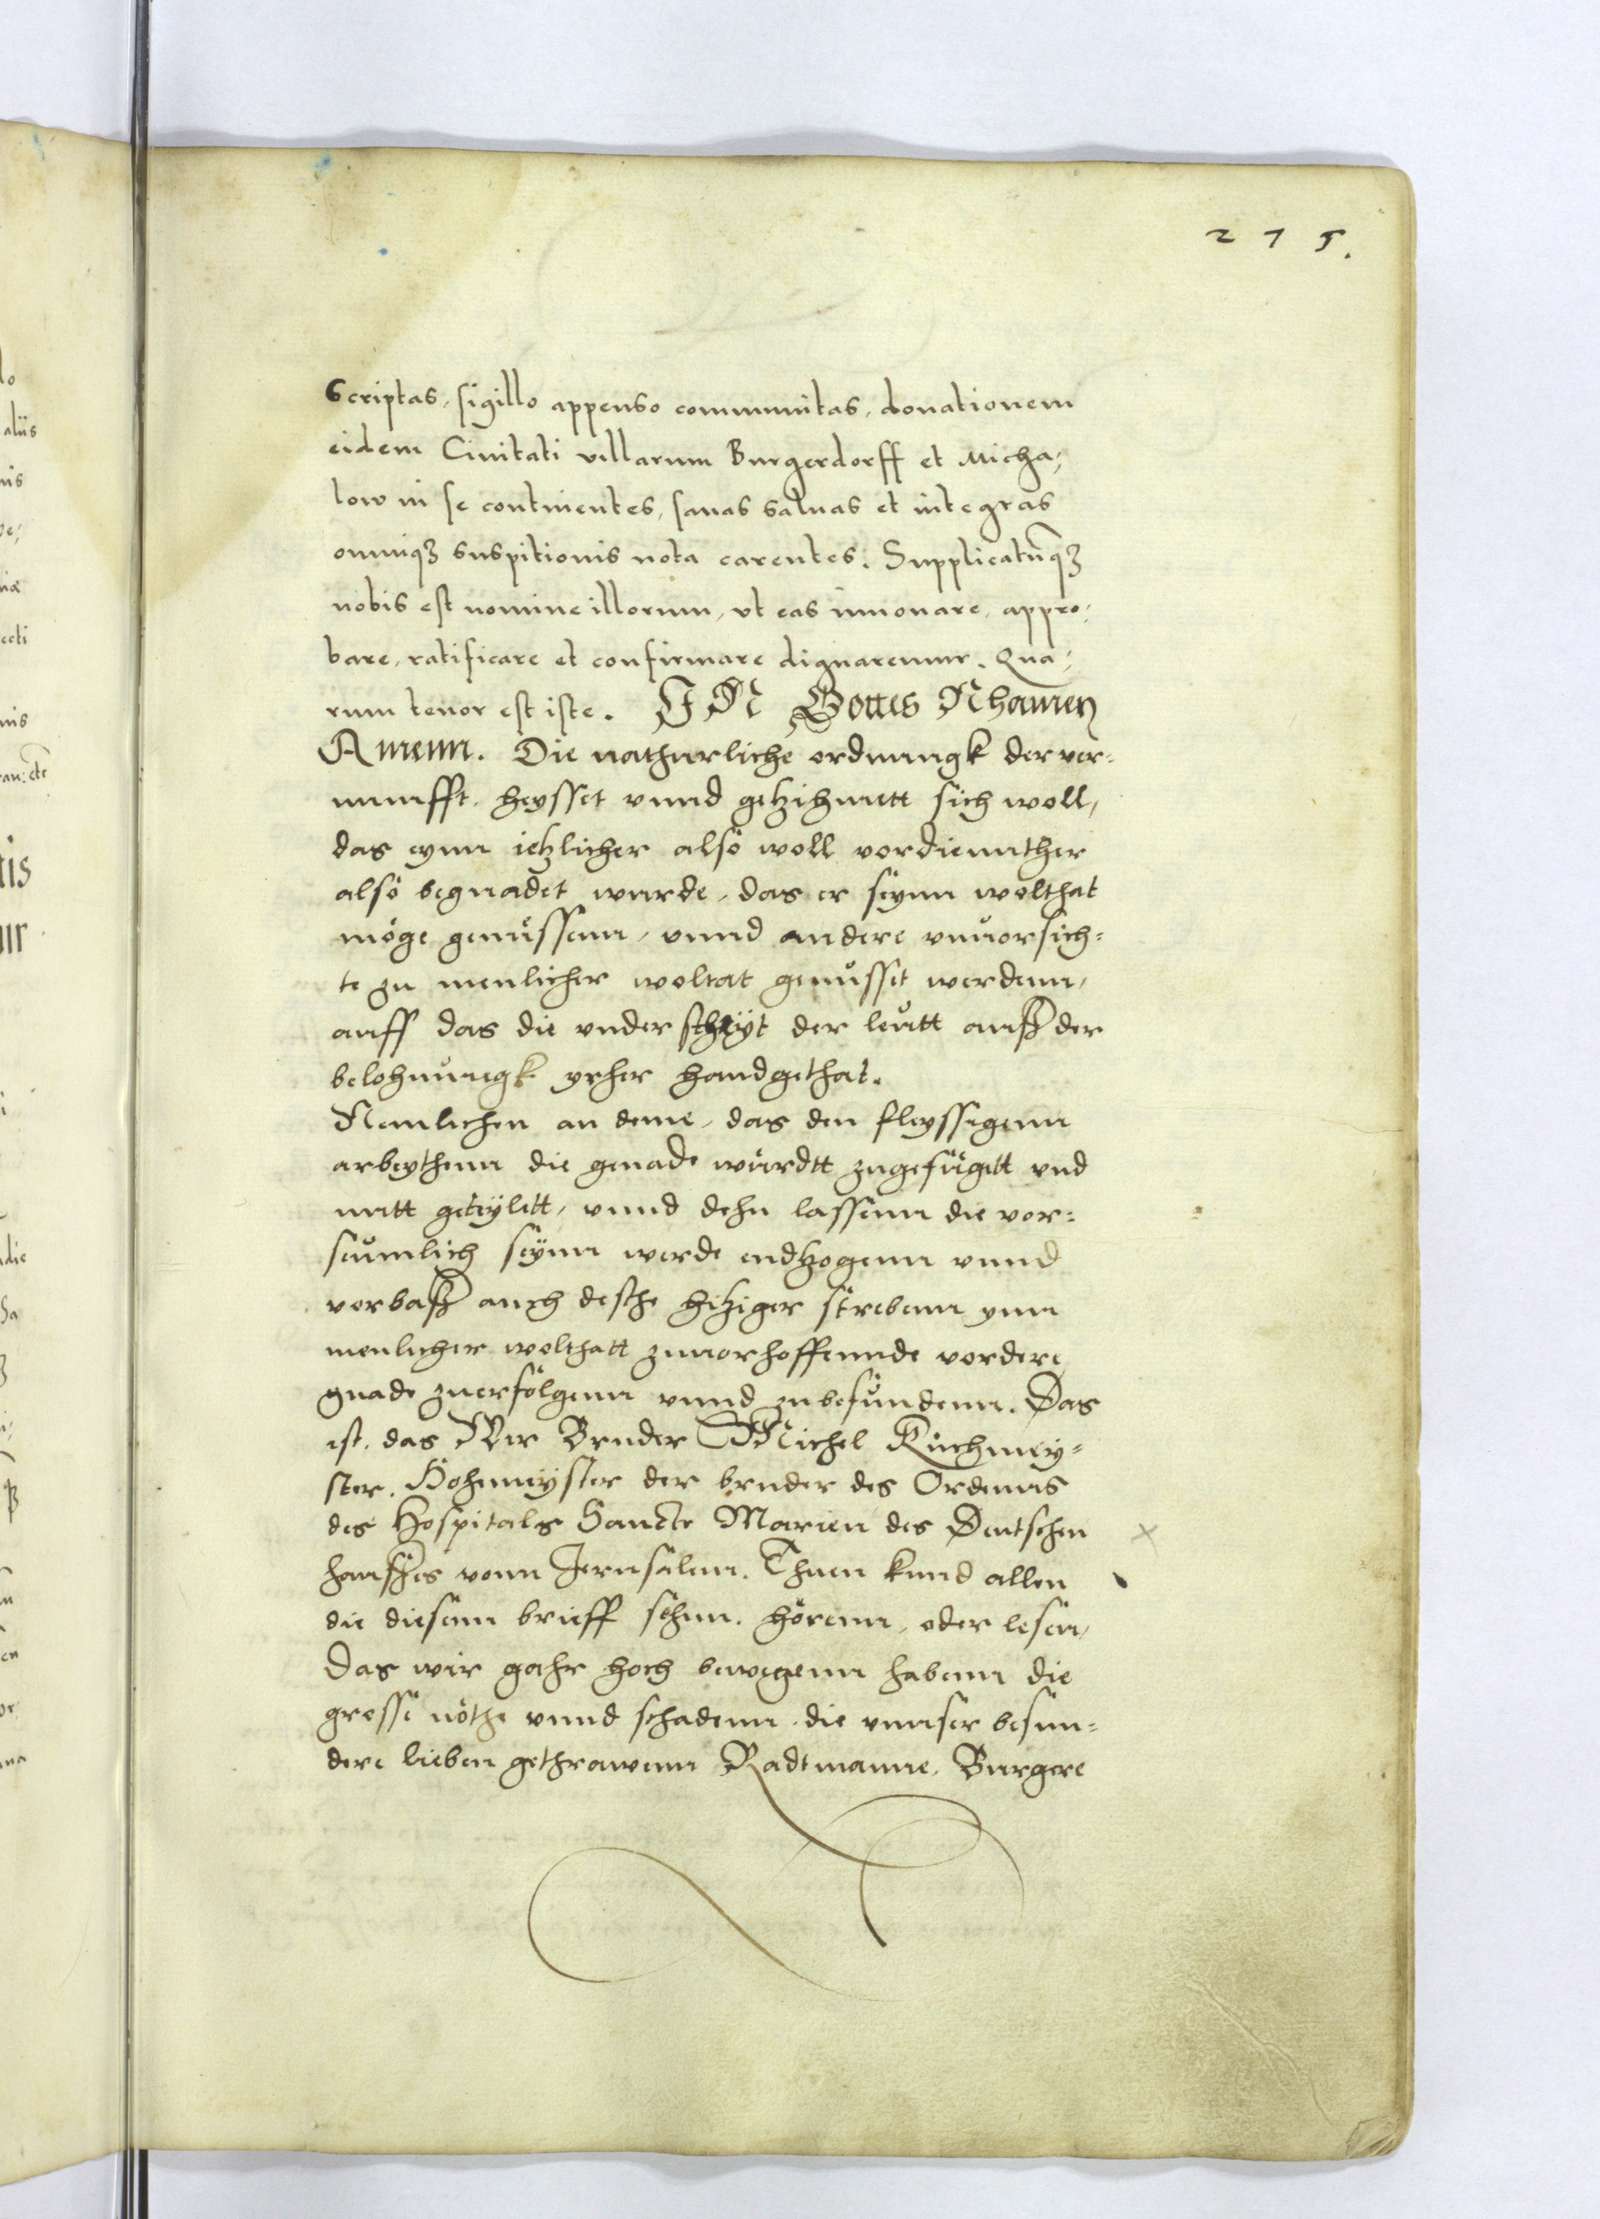 275.
Scriptas, sigillo appenso communitas, donationem
eidem Ciuitati villarum Burgerdorff et Micha;
low in se continentes, sanas saluas et integras
omniqȝ suspitionis nota carentes. Supplicatūqȝ
nobis est nomine illorum, vt eas innouare, appro;
bare, ratificare et confirmare dignaremur. Qua;
rum tenor est iste. IN Gottes Nhamen
Amenn. Die nathurliche ordnungk der ver=
nunfft, heysset vnnd getzihmett sich woll,
das eynn ietzlicher also woll vordiennther
also begnadet wurde, das er seynn wolthat
möge genüssenn, vnnd andere vnuorsich=
te zu menlicher woltat genüsset werdenn,
auff das die vnderscheyt der leütt auß der
belohnungk yrher handgethat.
Nemlichen an deme, das den fleyssigenn
arbeythenn die genade würdtt zugefügett vnd
mitt geteylett, vnnd dehn lassenn die vor=
seumlich seynn werde endtzogenn vnnd
vorbaß auch desthe hitziger strebenn ynn
menlicher wolthatt zuuorhoffennde vordere
gnade zuerfolgenn vnnd zubefindenn. Das
ist, das Wir Bruder Michel Kuchmey=
ster, Hohmeyster der bruder des Ordenns
des Hospitals Sancte Marien des Deutschen
haußes vonn Jerusalem. Thuen kund allen
die diesenn brieff sehnn, hörenn, oder lesen,
Das wir gahr hoch bewegenn habenn die
grosse nöthe vnnd schadenn, die vnnser besun=
dere lieben gethrawenn Radtmanne, Burgere